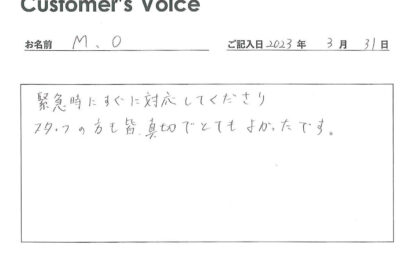 Customer's Voice
お名前 M.O ご記入日 2023 年 3 月 31 日
緊急時にすぐに対応してくださり
スタッフの方も皆、真切でとてもよかったです。